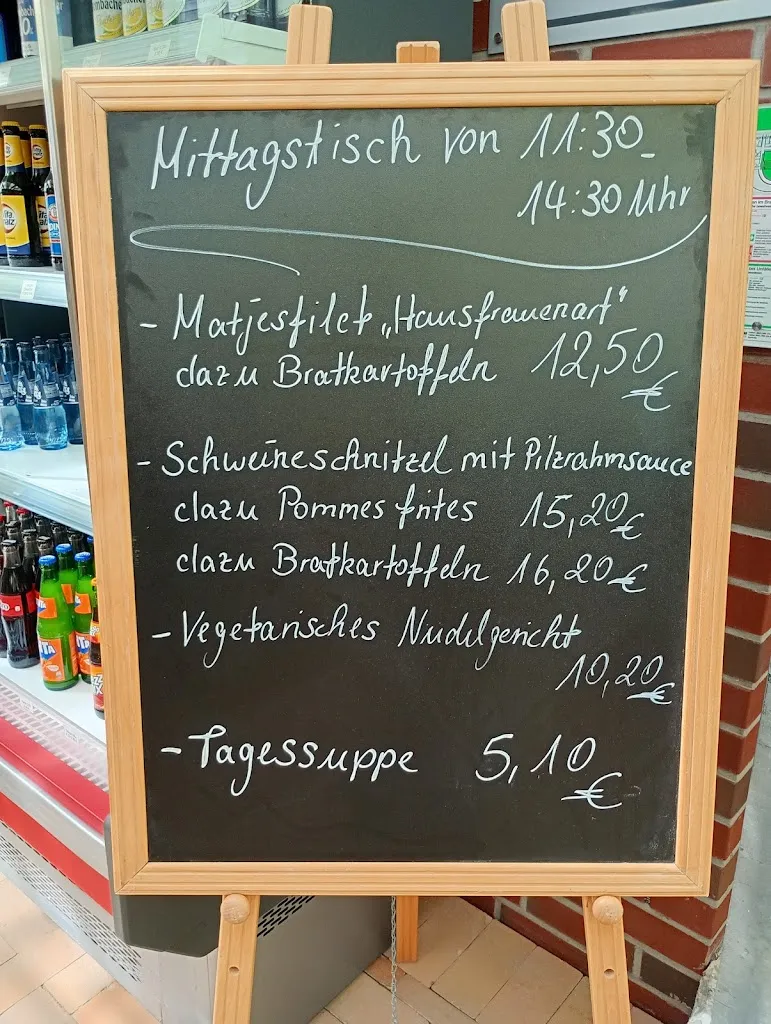 Mittagstisch von 11:30-
14:30 Uhr
- Matjesfilet „Hausfrauenart"
dazu Bratkartoffeln 12,50 €
- Schweineschnitzel mit Pilzrahmsauce
dazu Pommes frites 15,20 €
dazu Bratkartoffeln 16,20 €
- Vegetarisches Nudelgericht
10,20 €
- Tagessuppe 5,10 €